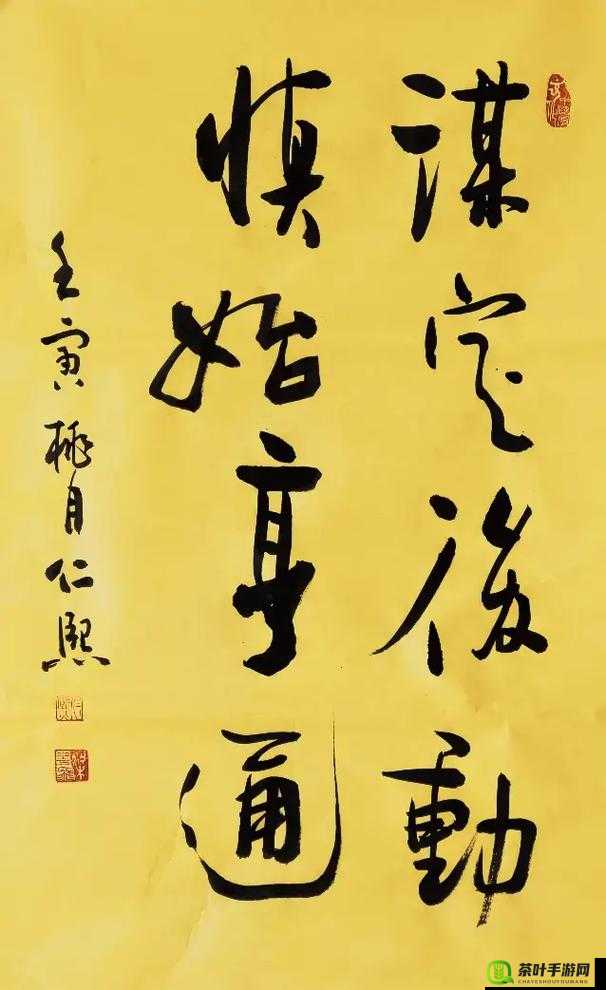 謀定後動
慎始亨通
壬寅桃月仁熙
茶叶手游网
CHAYESHOUYOUWANG